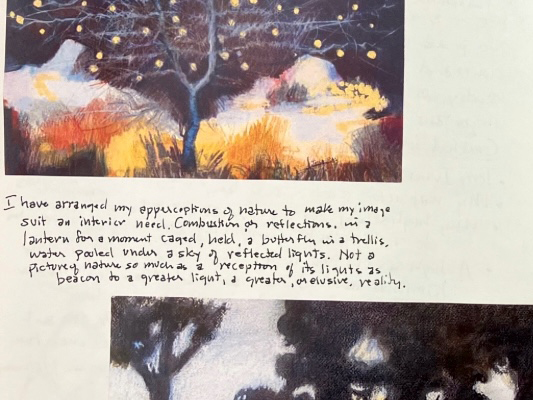 I have arranged my apperceptions of nature to make my image
suit an interior need. Combustion or reflections, in a
lantern for a moment caged, held, a butterfly in a trellis,
water pooled under a sky of reflected lights. Not a
picture of nature so much as a reception of its lights as
beacon to a greater light, a greater, elusive, reality.